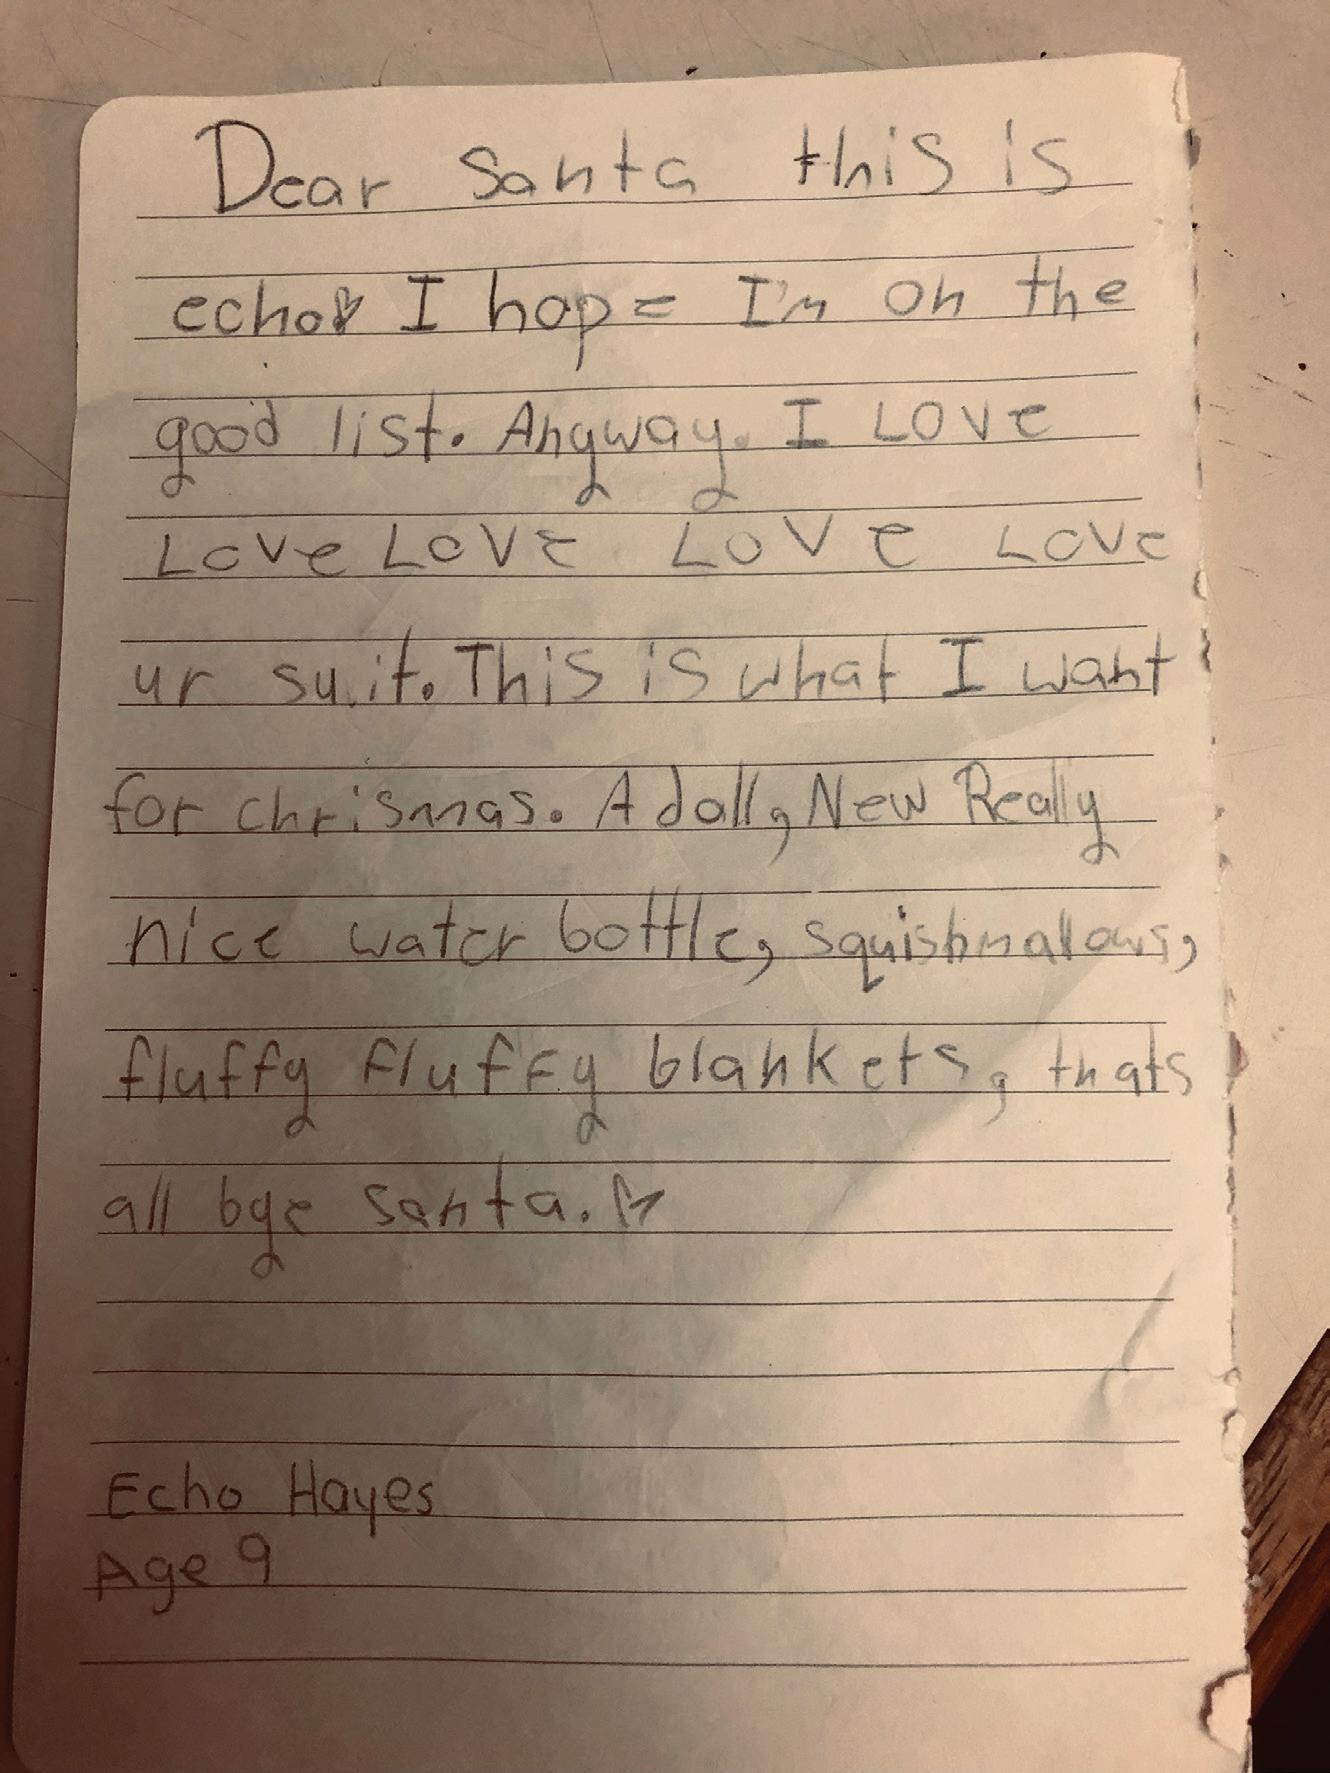 Dear Santa this is
echo I hope I'm on the
good list. Anyway. I LOVE
Love Love LOVe Love
ur suit. This is what I want
for chrismas. A doll, New Really
nice water bottle, squishmallows,
fluffy fluffy blankets, thats
all bye santa.
Echo Hayes
Age 9